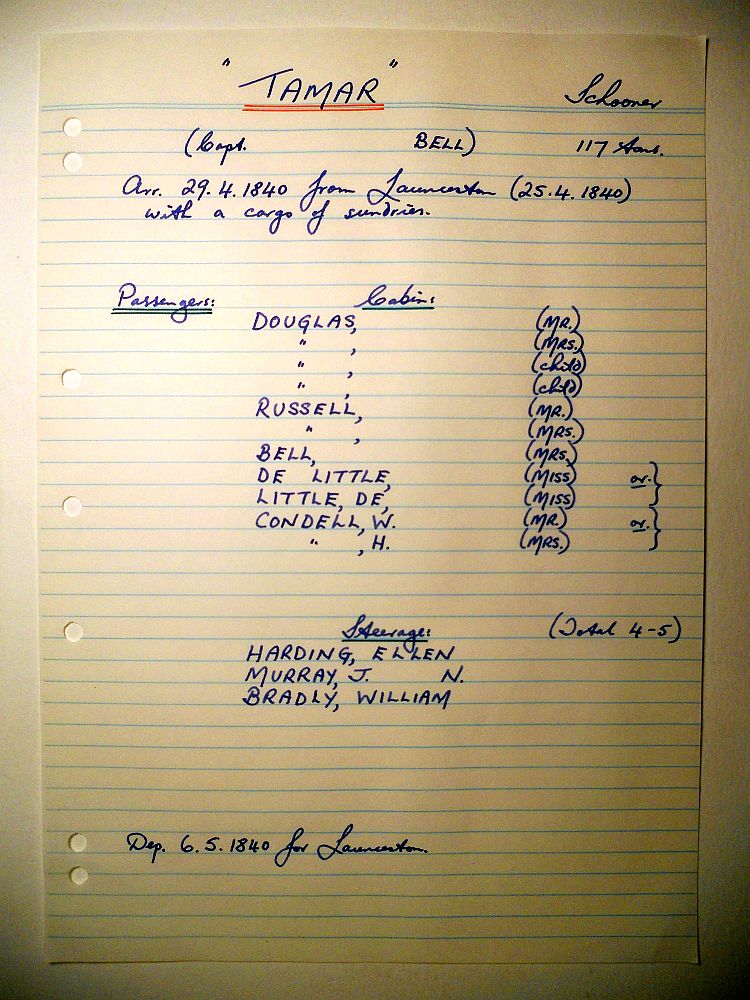 " TAMAR " Schooner
(Capt. BELL) 117 tons.
Arr. 29.4.1840 from Launceston (25.4.1840)
with a cargo of sundries.
Passengers: Cabin:
DOUGLAS, (MR.)
" , (MRS.)
" , (child)
" , (child)
RUSSELL, (MR.)
" , (MRS.)
BELL, (MRS.)
DE LITTLE, (MISS) or. }
LITTLE, DE, (MISS)
CONDELL, W. (MR.) or. }
" , H. (MRS.)
Steerage: (Total 4-5)
HARDING, ELLEN
MURRAY, J. N.
BRADLY, WILLIAM
Dep. 6.5.1840 for Launceston.